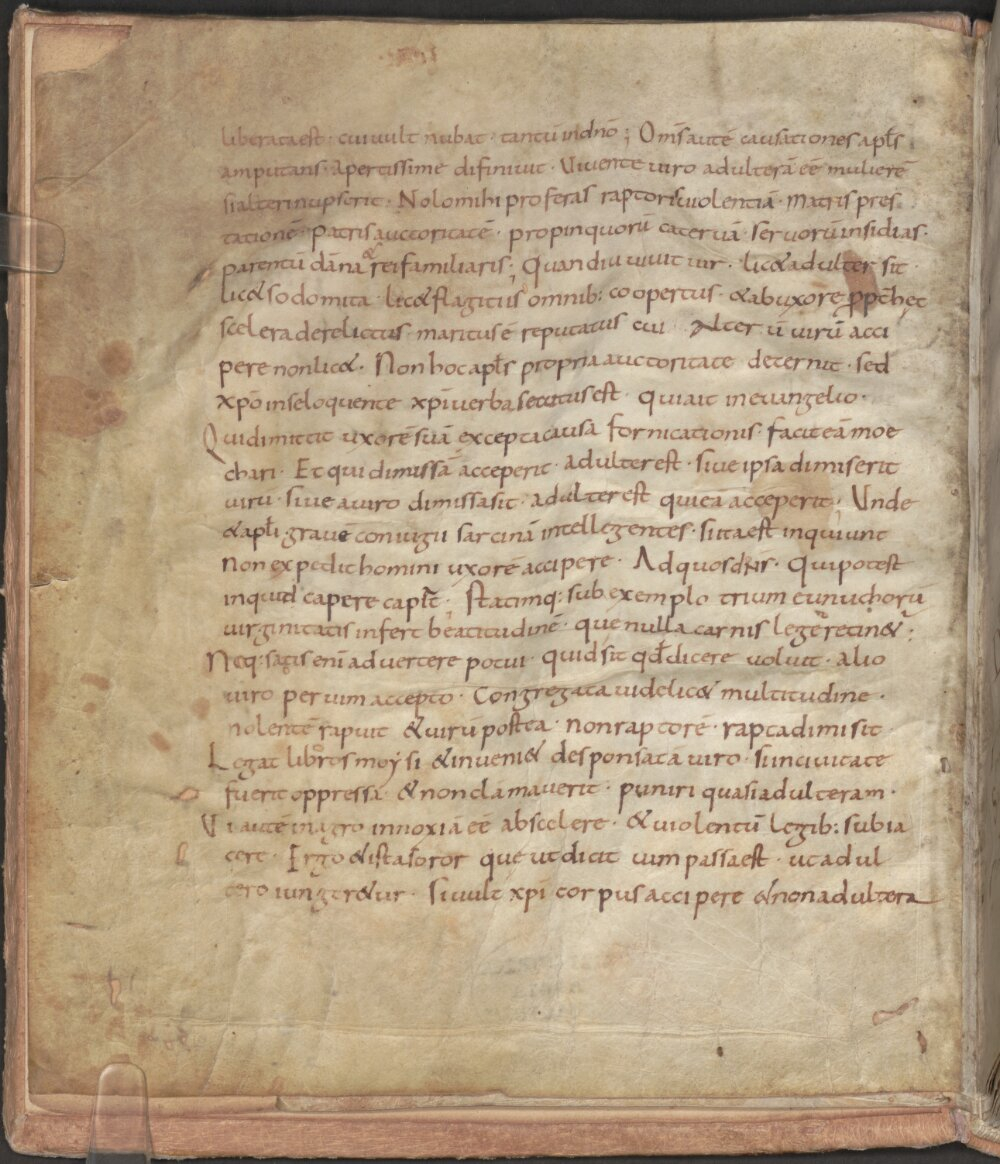 liberata est · cui uult nubat · tantū in dnō ; Omīs autē causationes apłs
amputans · apertissime difiniuit · Uiuente uiro adulterā eē mulierē
si alteri nupserit · Nolo mihi proferas raptoris uiolentiā · matris pres
tationē · patris auctoritatē · propinquorū cateruā · seruorū insidias ·
parentū dāna & rei familiaris ; Quandiu uiuit uir · lic& adulter sit ·
lic& sodomita · lic& flagitiis omnib: coopertus · & ab uxore ꝓpt hęc
scelera derelictus · maritus ē reputatus cui Alterū uirū acci
pere non lic& · Non hoc apłs propria auctoritate decernit · sed
xpō in se loquente xpi uerba secutus est · qui ait in euangelio ·
Qui dimittit uxorē suā excepta causa fornicationis · facit eā moe
chari · Et qui dimissā acceperit · adulter est · siue ipsa dimiserit
uirū · siue a uiro dimissa sit · adulter est qui eā acceperit · Unde
& apłi grauē coniugii sarcinā intellegentes · si ita est inquiunt
non expedit homini uxorē accipere · Ad quos dn̄s · Qui potest
inquid capere capīat ; Statimq: sub exemplo trium eunuchorū
uirginitatis infert beatitudinē · que nulla carnis lege retin& ;
Neq: satis enī aduertere potui · quid sit qđ dicere uoluit · alio
uiro per uim accepto · Congregata uidelic& multitudine ·
nolentē rapuit & uirū postea · non raptorē · rapta dimisit
Legat libros moysi & inueni& desponsatā uiro · si in ciuitate
fuerit oppressa · & non clamauerit · puniri quasi adulteram ·
Ui autē in agro innoxiā eē ab scelere · & uiolentū legib: subia
cere · Ergo & ista soror que ut dicit uim passa est · ut adul
tero iungeret&ur · si uult xpi corpus accipere & non adultera